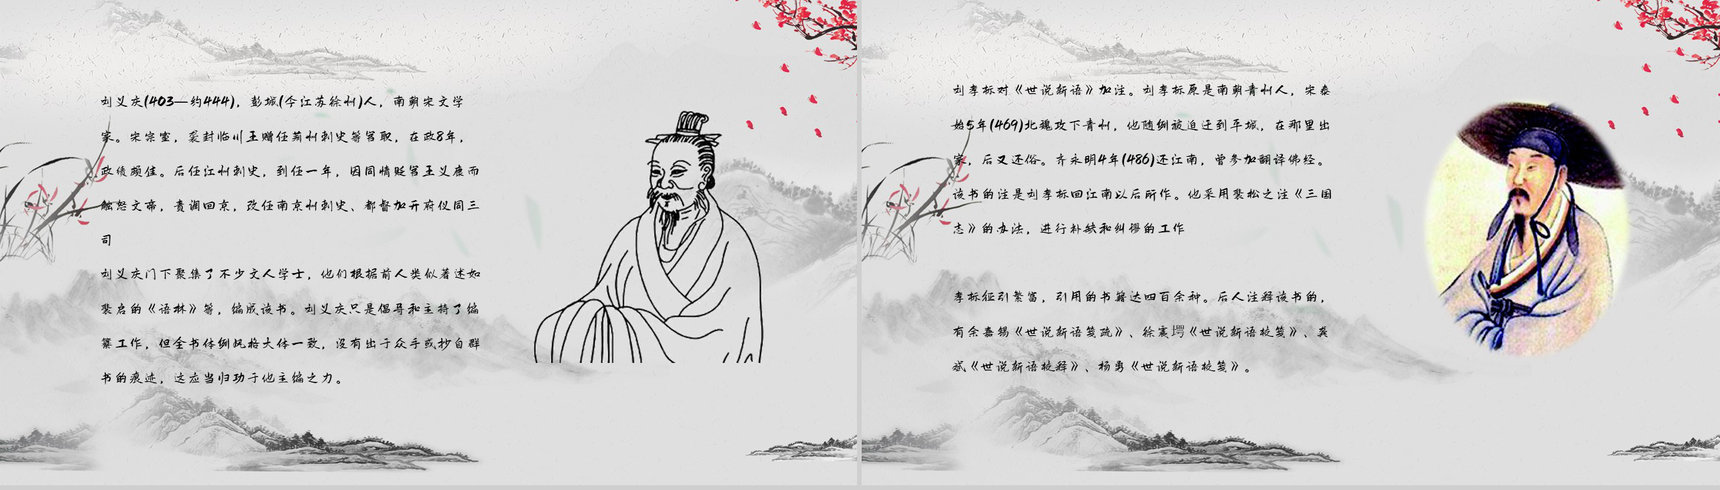 刘义庆(403—约444)，彭城(今江苏徐州)人，南朝宋文学
家。宋宗室，袭封临川王赠任荆州刺史等官职，在政8年，
政绩颇佳。后任江州刺史，到任一年，因同情贬官王义康而
触怒文帝，责调回京，改任南京州刺史、都督加开府仪同三
司
刘义庆门下聚集了不少文人学士，他们根据前人类似著述如
裴启的《语林》等，编成该书。刘义庆只是倡导和主持了编
纂工作，但全书体例风格大体一致，没有出于众手或抄自群
书的痕迹，这应当归功于他主编之力。
刘孝标对《世说新语》加注。刘孝标原是南朝青州人，宋泰
始5年(469)北魏攻下青州，他随例被迫迁到平城，在那里出
家，后又还俗。齐永明4年(486)还江南，曾参加翻译佛经。
该书的注是刘孝标回江南以后所作。他采用裴松之注《三国
志》的办法，进行补缺和纠谬的工作
孝标征引繁富，引用的书籍达四百余种。后人注释该书的，
有余嘉锡《世说新语笺疏》、徐震堮《世说新语校笺》、龚
斌《世说新语校释》、杨勇《世说新语校笺》。